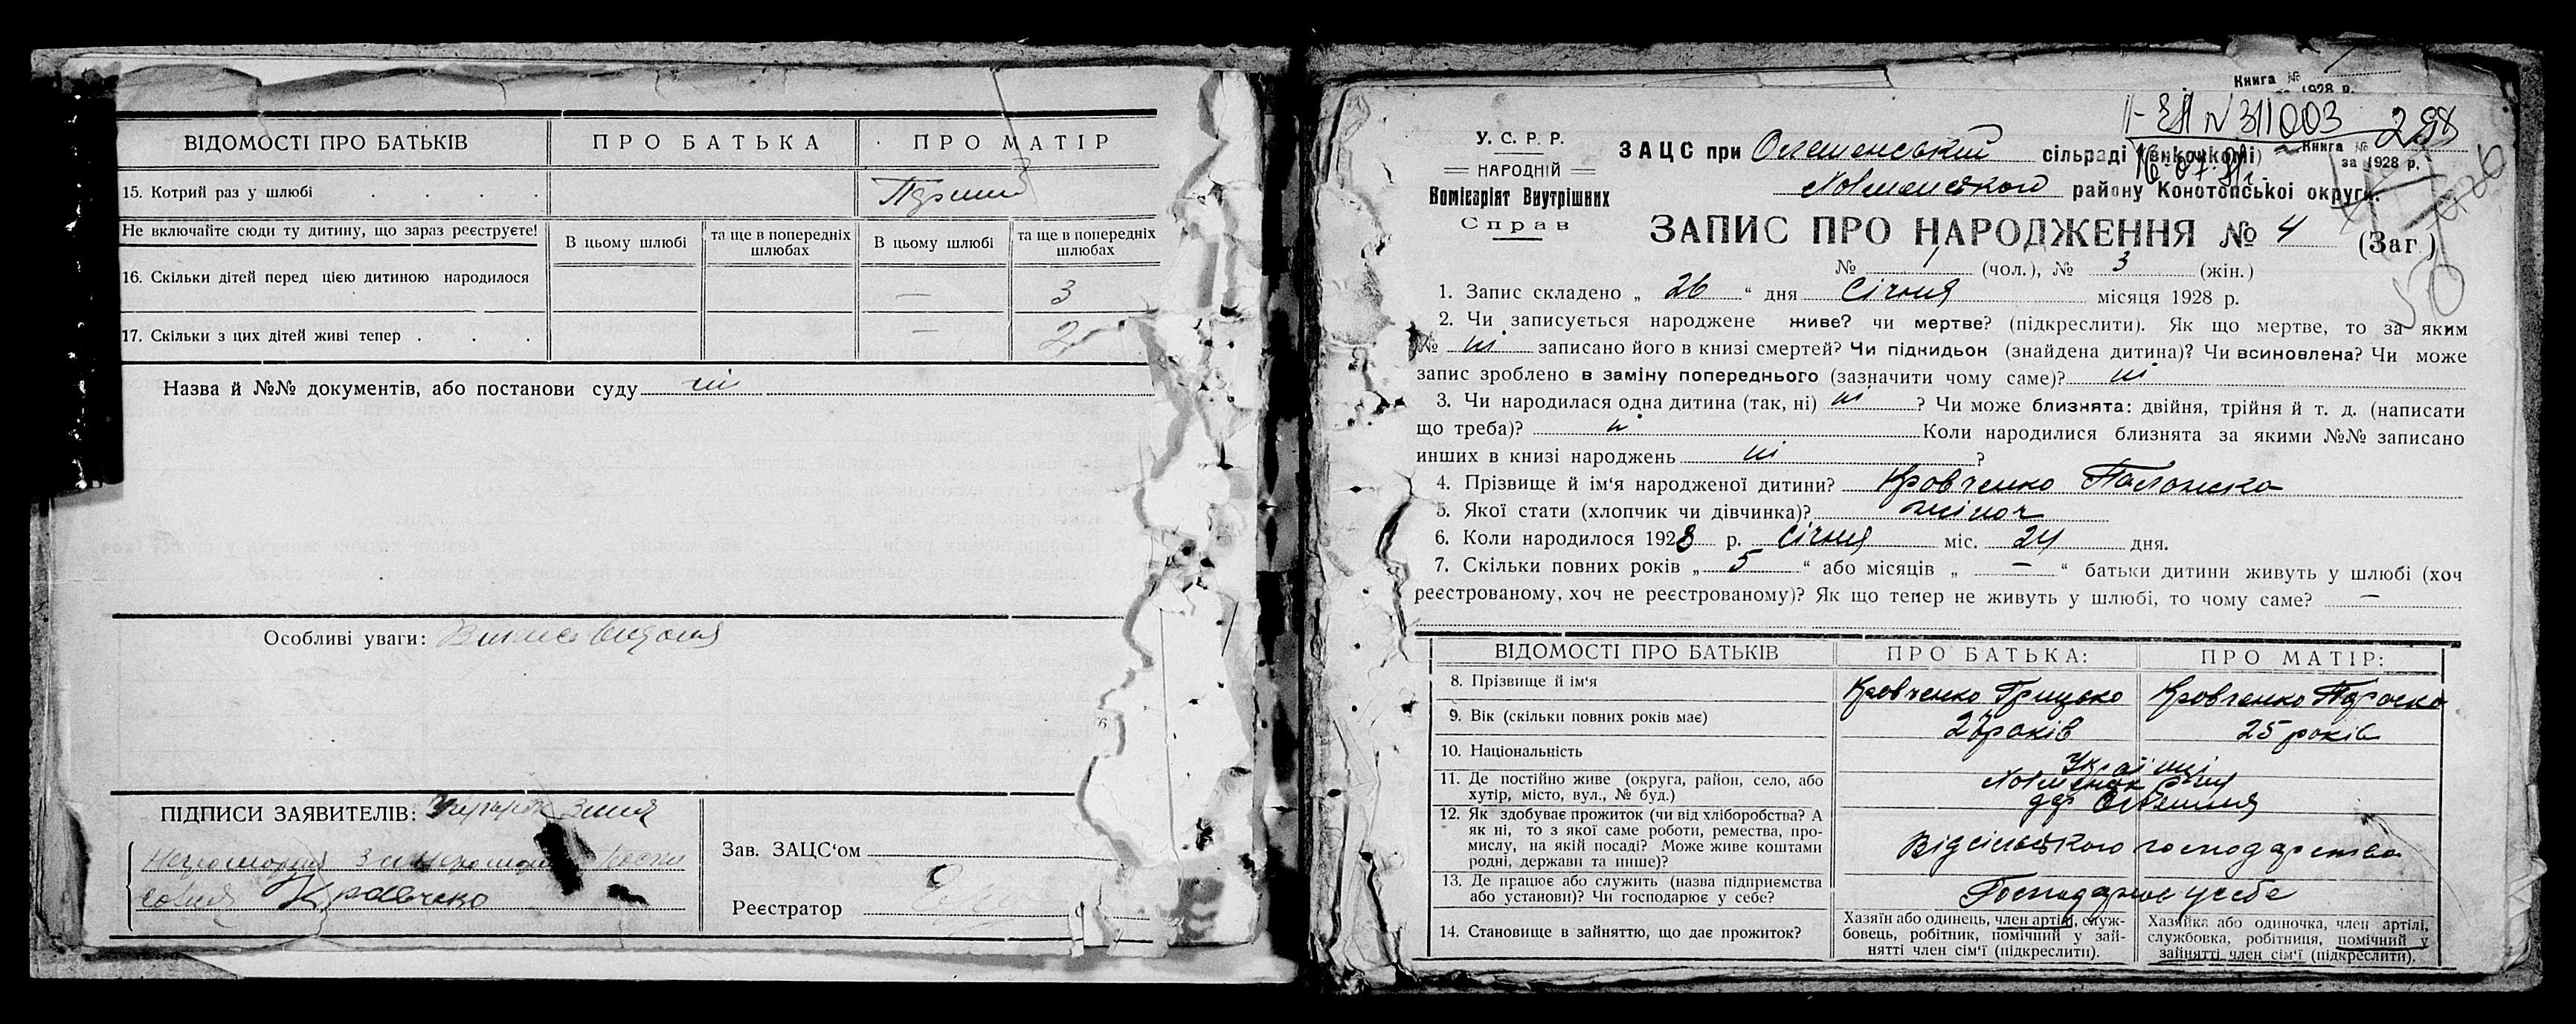 ВІДОМОСТІ ПРО БАТЬКІВ
ПРО БАТЬКА
ПРО МАТІР
15. Котрий раз у шлюбі . . . .
Перший
Не включайте сюди ту дитину, що зараз реєструєте!
В цьому шлюбі
та ще в попередніх шлюбах
В цьому шлюбі
та ще в попередніх шлюбах
16. Скільки дітей перед цією дитиною народилося
— 3
17. Скільки з цих дітей живі тепер . . .
— 2
Назва й №№ документів, або постанови суду ні
Особливі уваги:
ПІДПИСИ ЗАЯВИТЕЛІВ:
Кравченко
Зав. ЗАЦС‘ом
Реєстратор
Книга №
1928 р.
У. С. Р. Р.
НАРОДНІЙ
Комісаріят Внутрішних
Справ
N 311003
298
ЗАЦС при сільраді
Книга №
за 1928 р.
району Конотопської округи.
ЗАПИС ПРО НАРОДЖЕННЯ № 4 (Заг.)
№ 1 (чол.), № 3 (жін.)
1. Запис складено „ 26 “ дня Січня місяця 1928 р.
2. Чи записується народжене живе? чи мертве? (підкреслити). Як що мертве, то за яким
№ ні записано його в книзі смертей? Чи підкидьок (знайдена дитина)? Чи всиновлена? Чи може
запис зроблено в заміну попереднього (зазначити чому саме)? ні
3. Чи народилася одна дитина (так, ні) ні ? Чи може близнята: двійня, трійня й т. д. (написати
що треба)? Коли народилися близнята за якими №№ записано
инших в книзі народжень ні ?
4. Прізвище й ім‘я народженої дитини? Кровченко Палажка
5. Якої стати (хлопчик чи дівчинка)? жіноч
6. Коли народилося 1928 р. Січня міс. 24 дня.
7. Скільки повних років „ 5 “ або місяців „ — “ батьки дитини живуть у шлюбі (хоч
реєстрованому, хоч не реєстрованому)? Як що тепер не живуть у шлюбі, то чому саме? —
ВІДОМОСТІ ПРО БАТЬКІВ
ПРО БАТЬКА:
ПРО МАТІР:
8. Прізвище й ім‘я
Кровченко Грицько
Кровченко
9. Вік (скільки повних років має)
років
25 років
10. Національність
Українці
11. Де постійно живе (округа, район, село, або
хутір, місто, вул., № буд.)
12. Як здобуває прожиток (чи від хліборобства? А
як ні, то з якої саме роботи, ремества, про-
мислу, на якій посаді? Може живе коштами
родні, держави та инше)?
Від сільського господарства
13. Де працює або служить (назва підприємства
або установи)? Чи господарює у себе?
Господарює у себе
14. Становище в зайняттю, що дає прожиток?
Хазяїн або одинець, член артілі, служ-
бовець, робітник, помічний у зай-
нятті член сім‘ї (підкреслити).
Хазяйка або одиночка, член артілі,
службовка, робітниця, помічний у
зайнятті член сім‘ї (підкреслити).